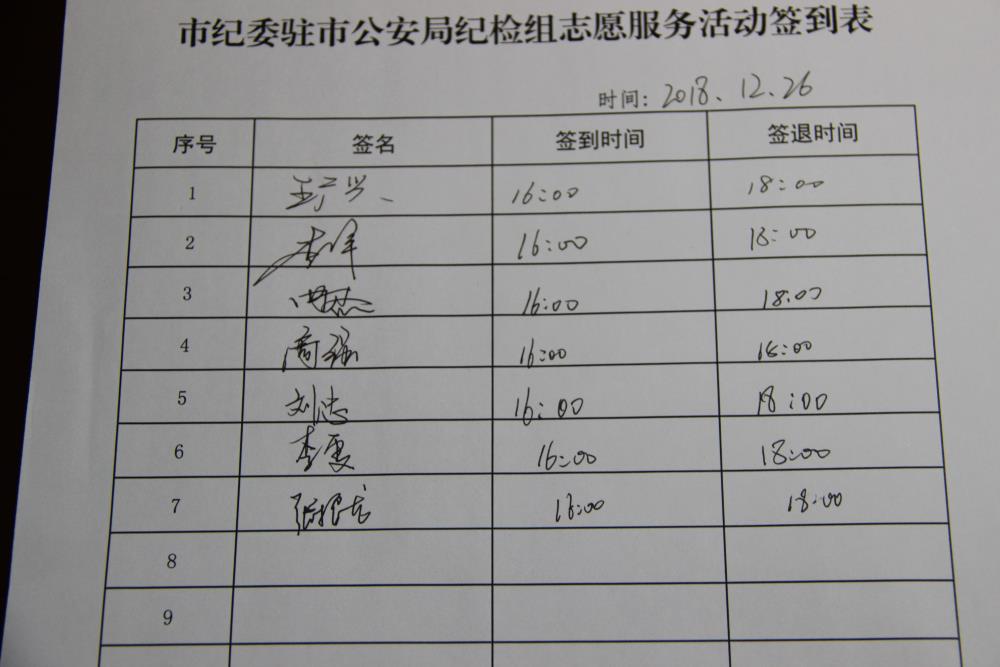 市纪委驻市公安局纪检组志愿服务活动签到表
时间：2018、12、26
序号 签名 签到时间 签退时间
1 王广兴 16:00 18:00
2 李洋 16:00 18:00
3 16:00 18:00
4 高强 16:00 18:00
5 刘忠 16:00 18:00
6 李夏 16:00 18:00
7 18:00
8
9